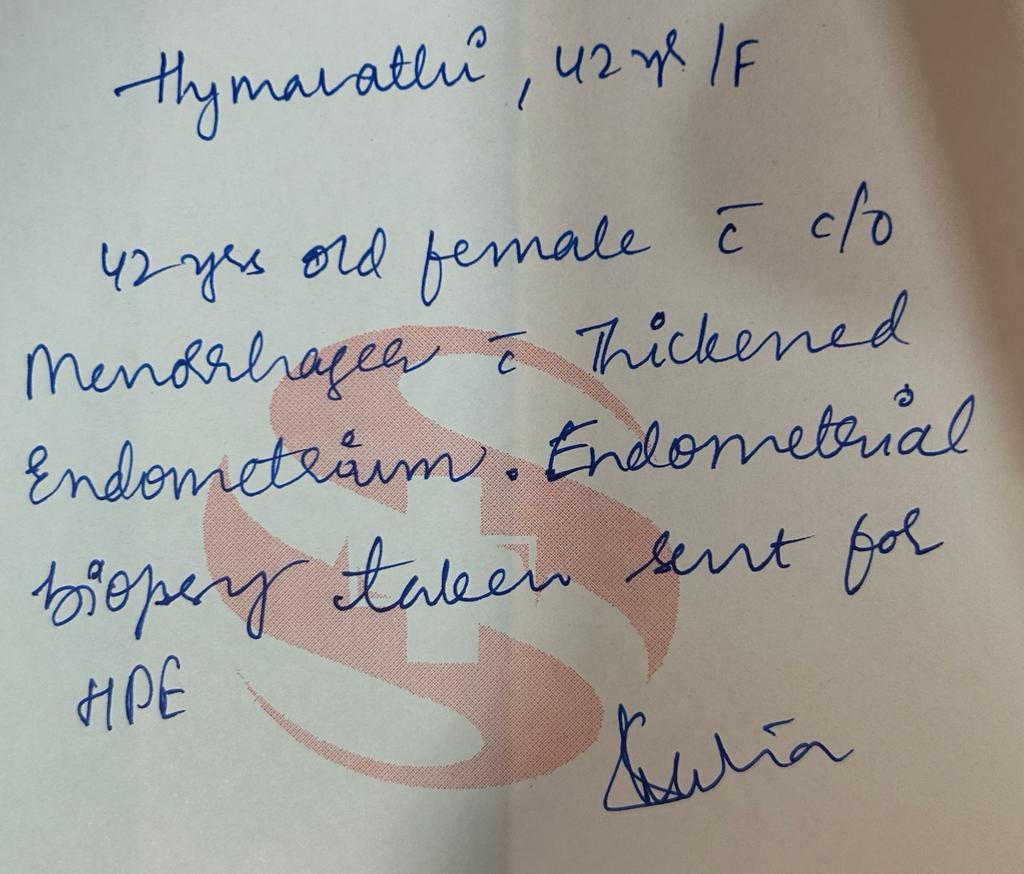 Hymavathi, 42 yr /F
42 yrs old female c̄ c/o
Menorrhagea c̄ Thickened
Endometrium. Endometrial
biopsy taken sent for
HPE